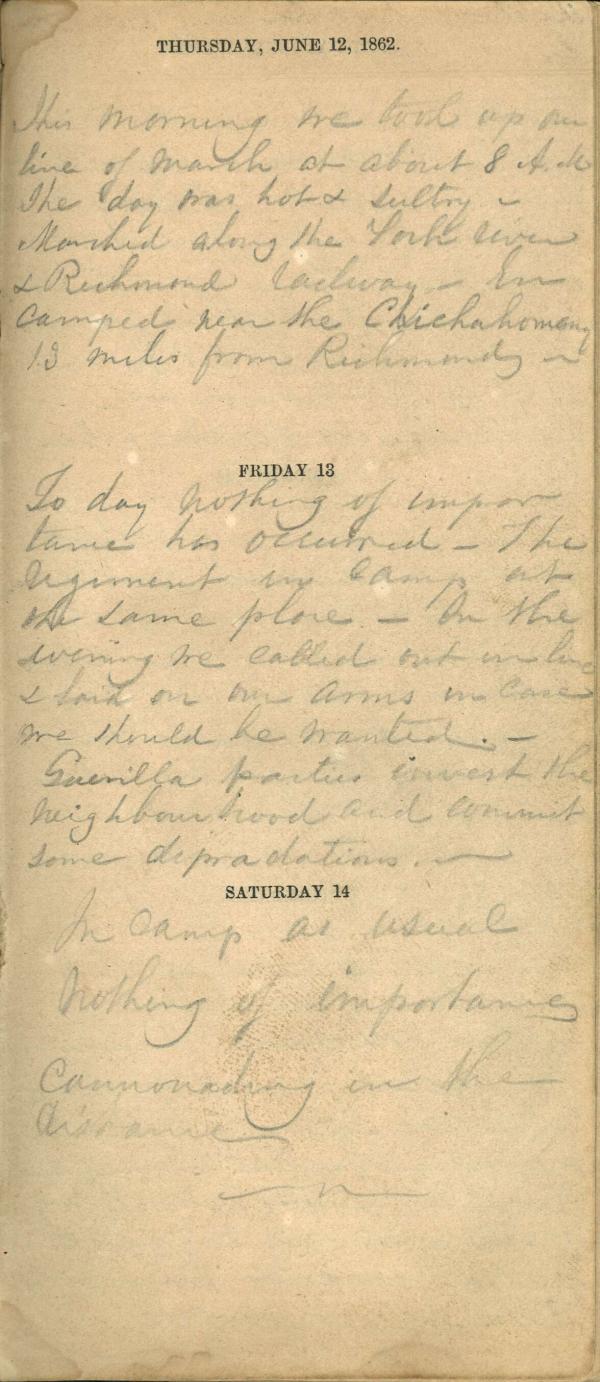 THURSDAY, JUNE 12, 1862.
This morning we took up our
line of march at about 8 A.M
The day was hot & sultry –
Marched along the York river
& Richmond railway – En
camped near the Chichahomany
13 miles from Richmond –
FRIDAY 13
To day nothing of impor
tance has occurred – The
regiment in camp at
the same place. – In the
evening we called out in line
& laid on our arms in case
we should be wanted. –
Guerilla parties invest the
neighbourhood and commit
some depradations. –
SATURDAY 14
In camp as usual
Nothing of importance
Cannonading in the
distance